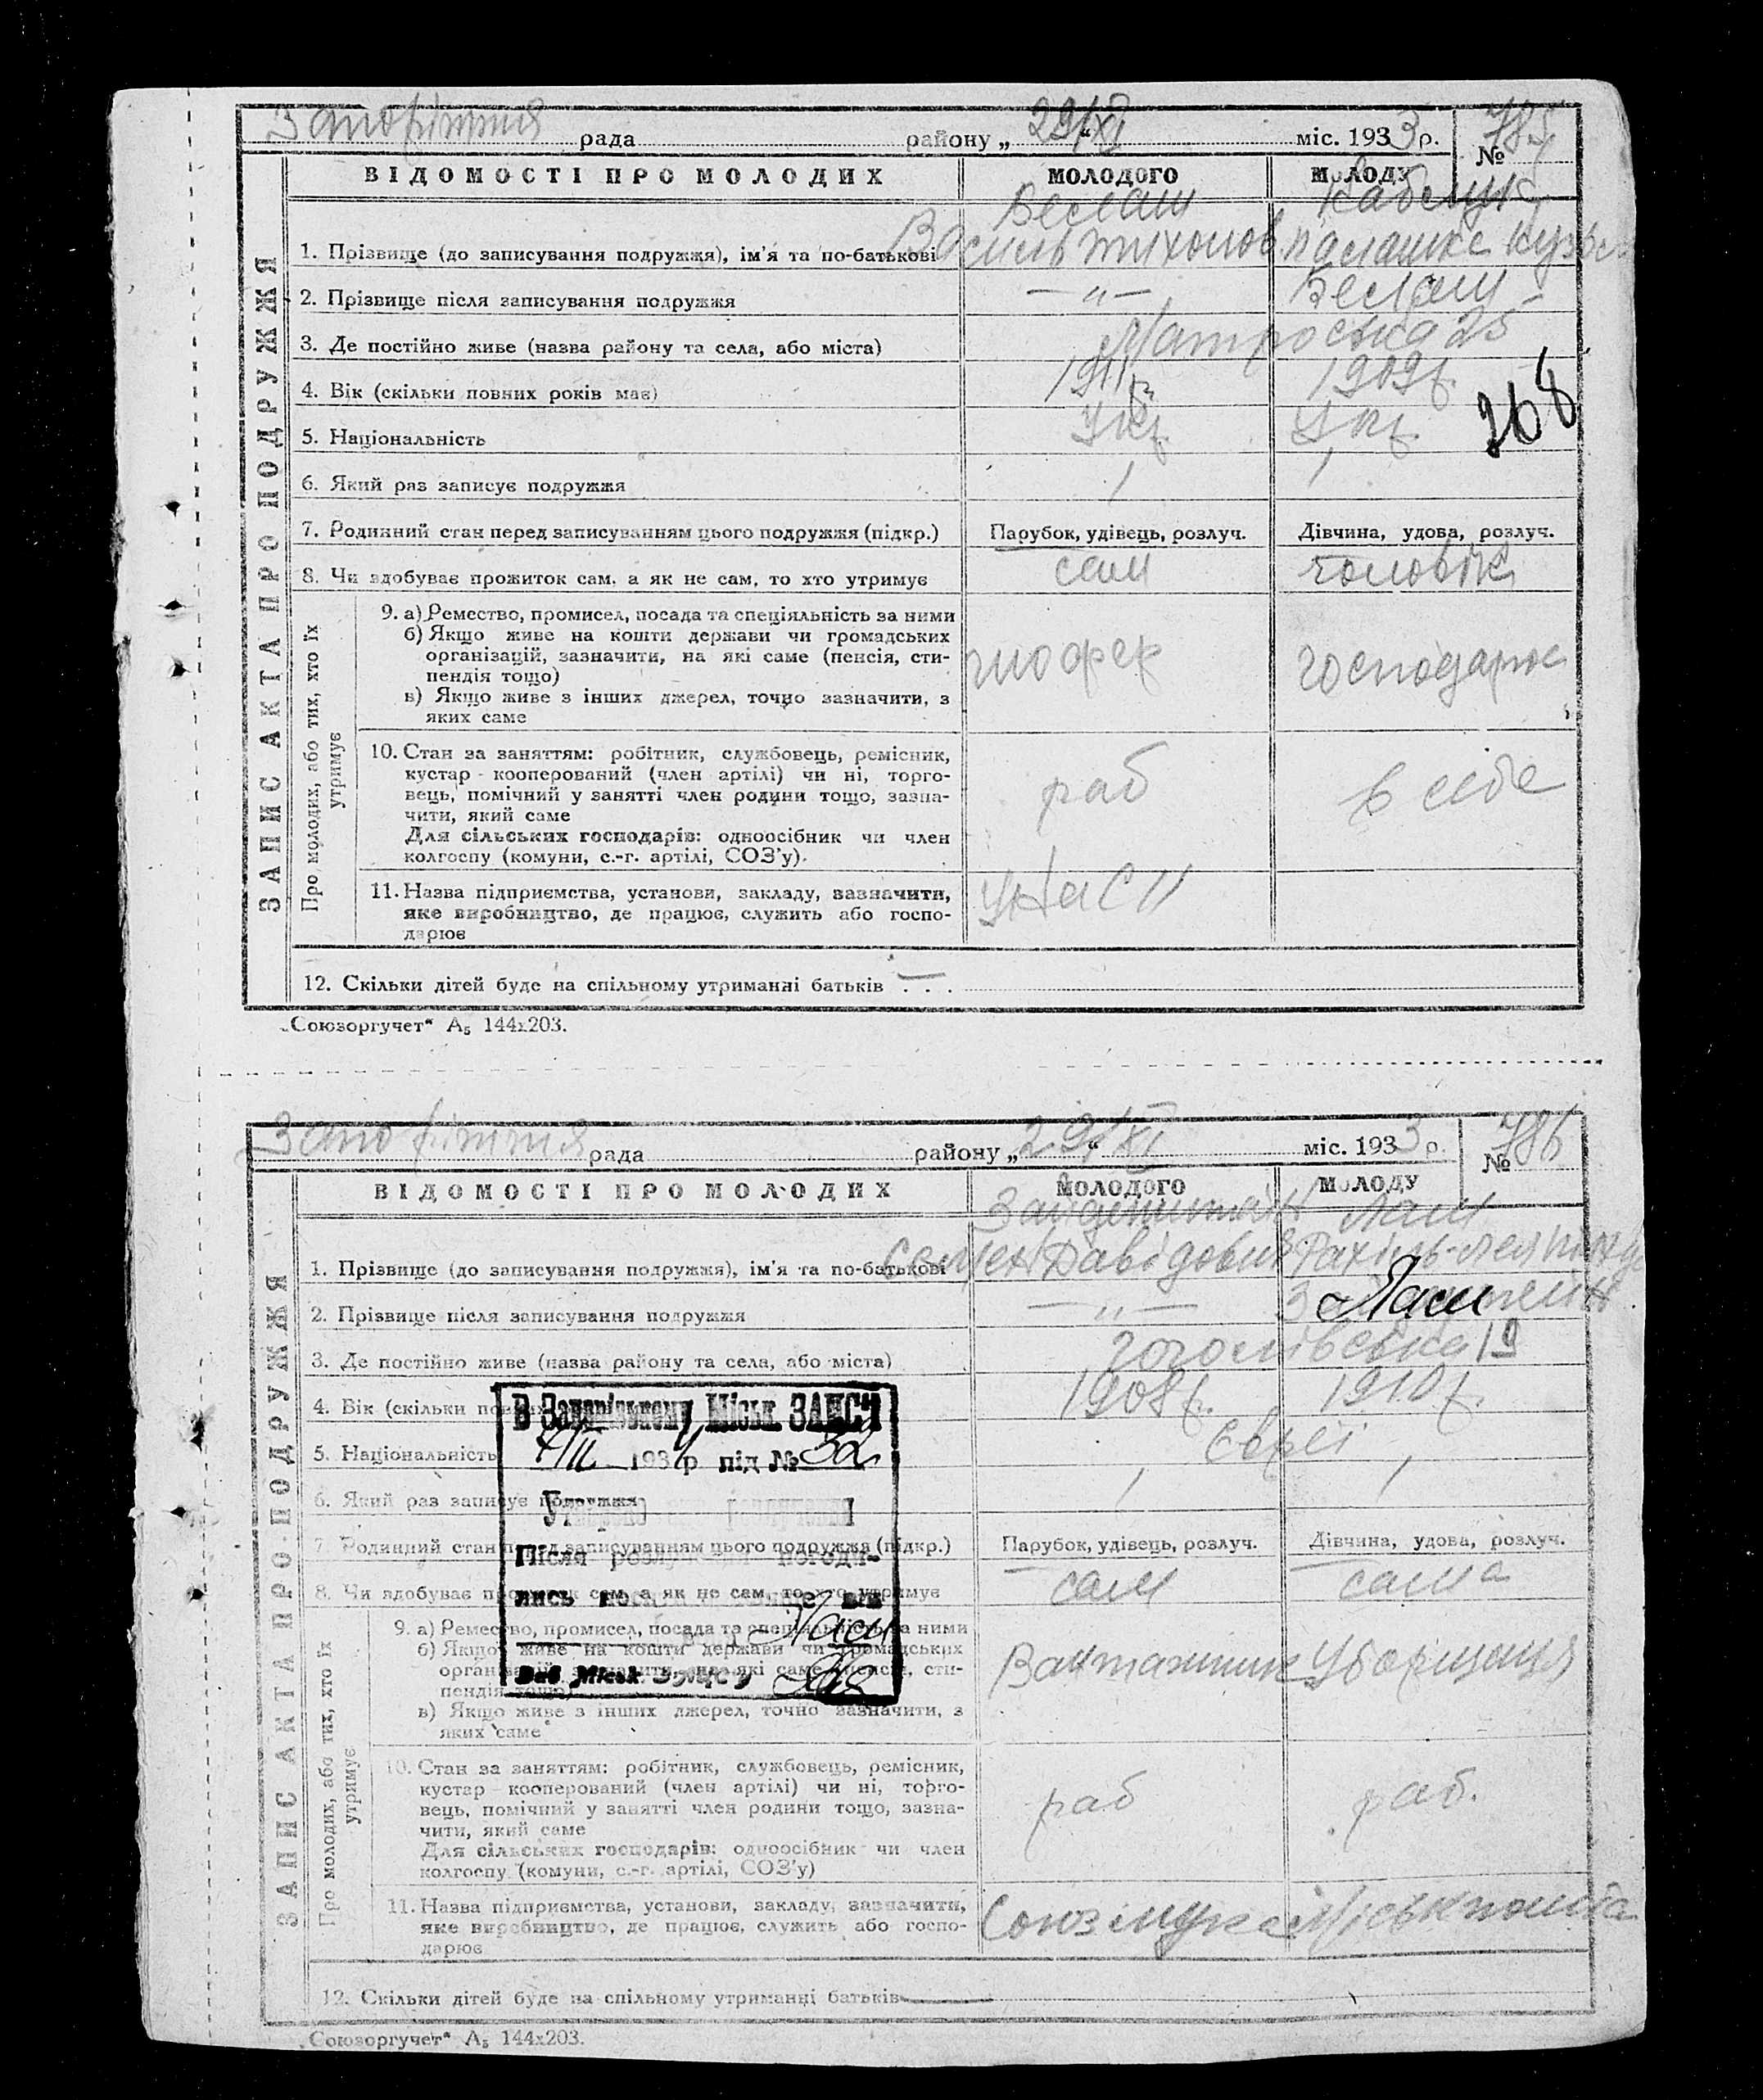 Запоріжжя рада району „ 29/XI “ міс. 1933 р. № 785
ВІДОМОСТІ ПРО МОЛОДИХ МОЛОДОГО МОЛОДУ
ЗАПИС АКТА ПРО ПОДРУЖЖЯ
1. Прізвище (до записування подружжя), ім'я та по-батькові
Василь Тихонов.
2. Прізвище після записування подружжя — „ —
3. Де постійно живе (назва району та села, або міста) Матроська 25
4. Вік (скільки повних років має) 1911 р. 1909 р.
268
5. Національність Укр. Укр.
6. Який раз записує подружжя 1 1
7. Родинний стан перед записуванням цього подружжя (підкр.) Парубок, удівець, розлуч. Дівчина, удова, розлуч.
8. Чи здобуває прожиток сам, а як не сам, то хто утримує сам чоловік
Про молодих, або тих, хто їх утримує
9. а) Ремество, промисел, посада та спеціяльність за ними
б) Якщо живе на кошти держави чи громадських
організацій, зазначити, на які саме (пенсія, сти-
пендія тощо)
в) Якщо живе з інших джерел, точно зазначити, з
яких саме
шофер
10. Стан за заняттям: робітник, службовець, ремісник,
кустар - кооперований (член артілі) чи ні, торго-
вець, помічний у занятті член родини тощо, зазна-
чити, який саме
Для сільських господарів: одноосібник чи член
колгоспу (комуни, с.-г. артілі, СОЗ'у).
раб в себе
11. Назва підприємства, установи, закладу, зазначити,
яке виробництво, де працює, служить або госпо-
дарює
12. Скільки дітей буде на спільному утриманні батьків . . . —
„Союзоргучет“ А₅ 144х203.
Запоріжжя рада району „ 29/XI “ міс. 1933 р. № 786
ВІДОМОСТІ ПРО МОЛОДИХ МОЛОДОГО МОЛОДУ
ЗАПИС АКТА ПРО ПОДРУЖЖЯ
Лам
1. Прізвище (до записування подружжя), ім'я та по-батькові
Давідович Рахіль-Лея
2. Прізвище після записування подружжя — „ — Лам
3. Де постійно живе (назва району та села, або міста) Гоголівська 19
4. Вік (скільки 1908 р. 1910 р.
5. Національність Євреї
6. Який раз записує подружжя 1 1
7. Родинний стан перед записуванням цього подружжя (підкр.) Парубок, удівець, розлуч. Дівчина, удова, розлуч.
8. Чи здобуває сам, а як не сам, то хто утримує сам сама
В Запорізькому Міськ. ЗАГС'і
1934 р під № 32
Після
лись
Лам
Зав. Міськ.
Про молодих, або тих, хто їх утримує
9. а) Ремество, промисел, посада та спеціяльність за ними
б) Якщо живе на кошти держави чи громадських
організацій, зазначити, на які саме (пенсія, сти-
пендія тощо)
в) Якщо живе з інших джерел, точно зазначити, з
яких саме
Вантажник Уборщиця
10. Стан за заняттям: робітник, службовець, ремісник,
кустар - кооперований (член артілі) чи ні, торго-
вець, помічний у занятті член родини тощо, зазна-
чити, який саме
Для сільських господарів: одноосібник чи член
колгоспу (комуни, с.-г. артілі, СОЗ'у)
раб раб.
11. Назва підприємства, установи, закладу, зазначити,
яке виробництво, де працює, служить або госпо-
дарює
Союзмука Міськпошта
12. Скільки дітей буде на спільному утриманні батьків —
„Союзоргучет“ А₅ 144х203.